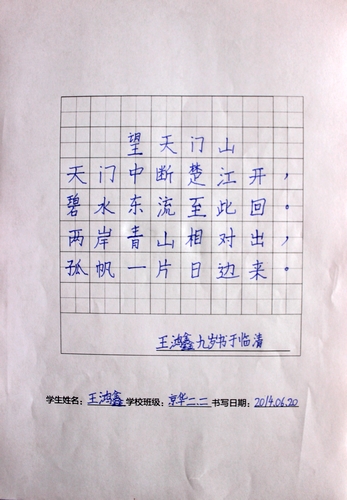 望天门山
天门中断楚江开，
碧水东流至此回。
两岸青山相对出，
孤帆一片日边来。
王鸿鑫九岁书于临清
学生姓名：王鸿鑫 学校班级：京华二.二 书写日期：2014.06.20